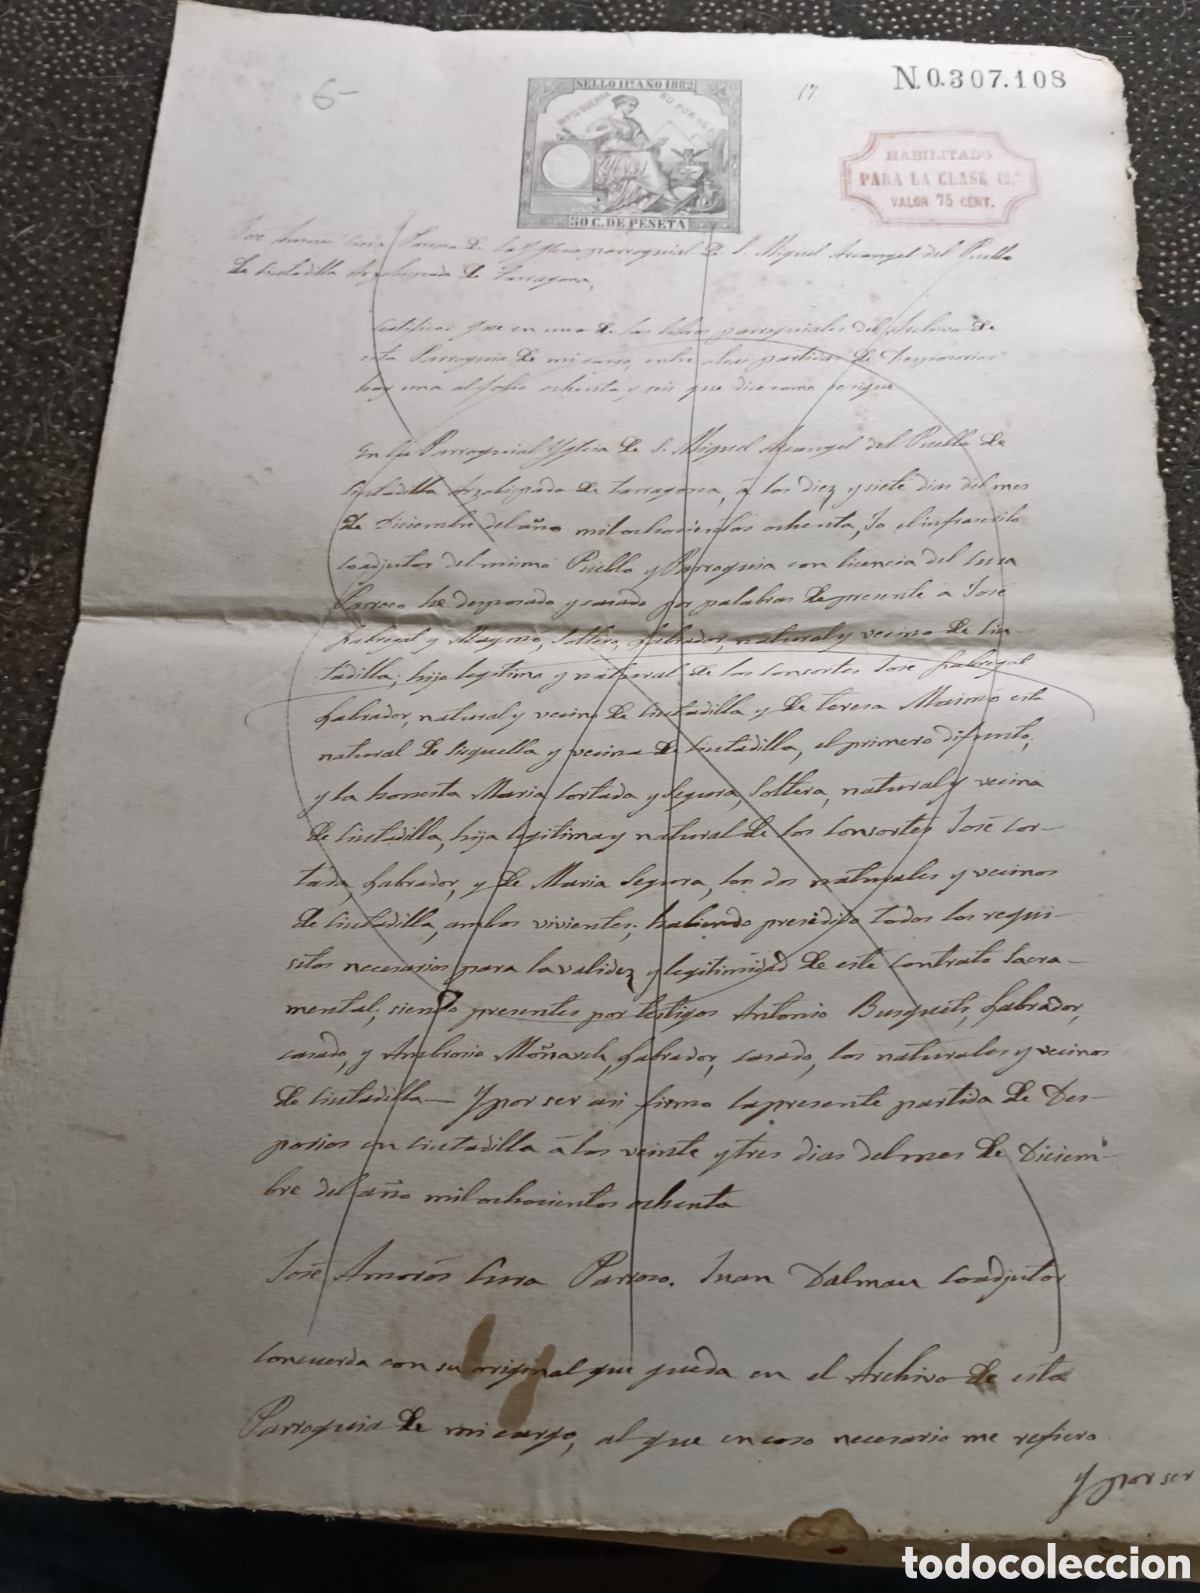 6-
SELLO 11º AÑO 1882
50 C. DE PESETA
17
N.0.307.108
HABILITADO
PARA LA CLASE 12.ª
VALOR 75 CENT.
José Amorós Cura Párroco de la Yglesia parroquial de S. Miguel Arcangel del Pueblo
de Ciutadilla Arzobispado de Tarragona,
Certifico: Que en uno de los libros parroquiales del Archivo de
esta Parroquia de mi cargo, entre otras partidas de Desposorios
hay una al folio ochenta y seis que dice como se sigue
En la Parroquial Yglesia de S. Miguel Arcangel del Pueblo de
Ciutadilla Arzobispado de Tarragona, á los diez y siete dias del mes
de Diciembre del año mil ochocientos ochenta, Yo el infrascrito
Coadjutor del mismo Pueblo y Parroquia con licencia del Cura
Parroco he desposado y casado por palabras de presente á José
Fabregat y Maymo, Soltero, Labrador, natural y vecino de Ciu-
tadilla; hijo legitimo y natural de los Consortes José Fabregat
Labrador, natural y vecino de Ciutadilla y de Teresa Maimó esta
natural de Ciquella y vecina de Ciutadilla, el primero difunto;
y la honesta Maria Cortada y Segura, Soltera, natural y vecina
de Ciutadilla, hija legitima y natural de los Consortes José Cor-
tada, Labrador, y de Maria Segura, los dos naturales y vecinos
de Ciutadilla, ambos vivientes; habiendo presedido todos los requi-
sitos necesarios para la validez y legitimidad de este Contrato Sacra-
mental; siendo presentes por testigos Antonio Busquets, Labrador,
casado, y Ambrosio Moñarch, Labrador, casado, los naturales y vecinos
de Ciutadilla— Y por ser asi firmo la presente partida de Des-
posorios en Ciutadilla á los veinte y tres dias del mes de Diciem-
bre del año mil ochocientos ochenta
José Amorós Cura Parroco. Juan Dalmau Coadjutor
Concuerda con su original que queda en el Archivo de esta
Parroquia de mi cargo, al que en caso necesario me refiero
Y por ser
todocoleccion